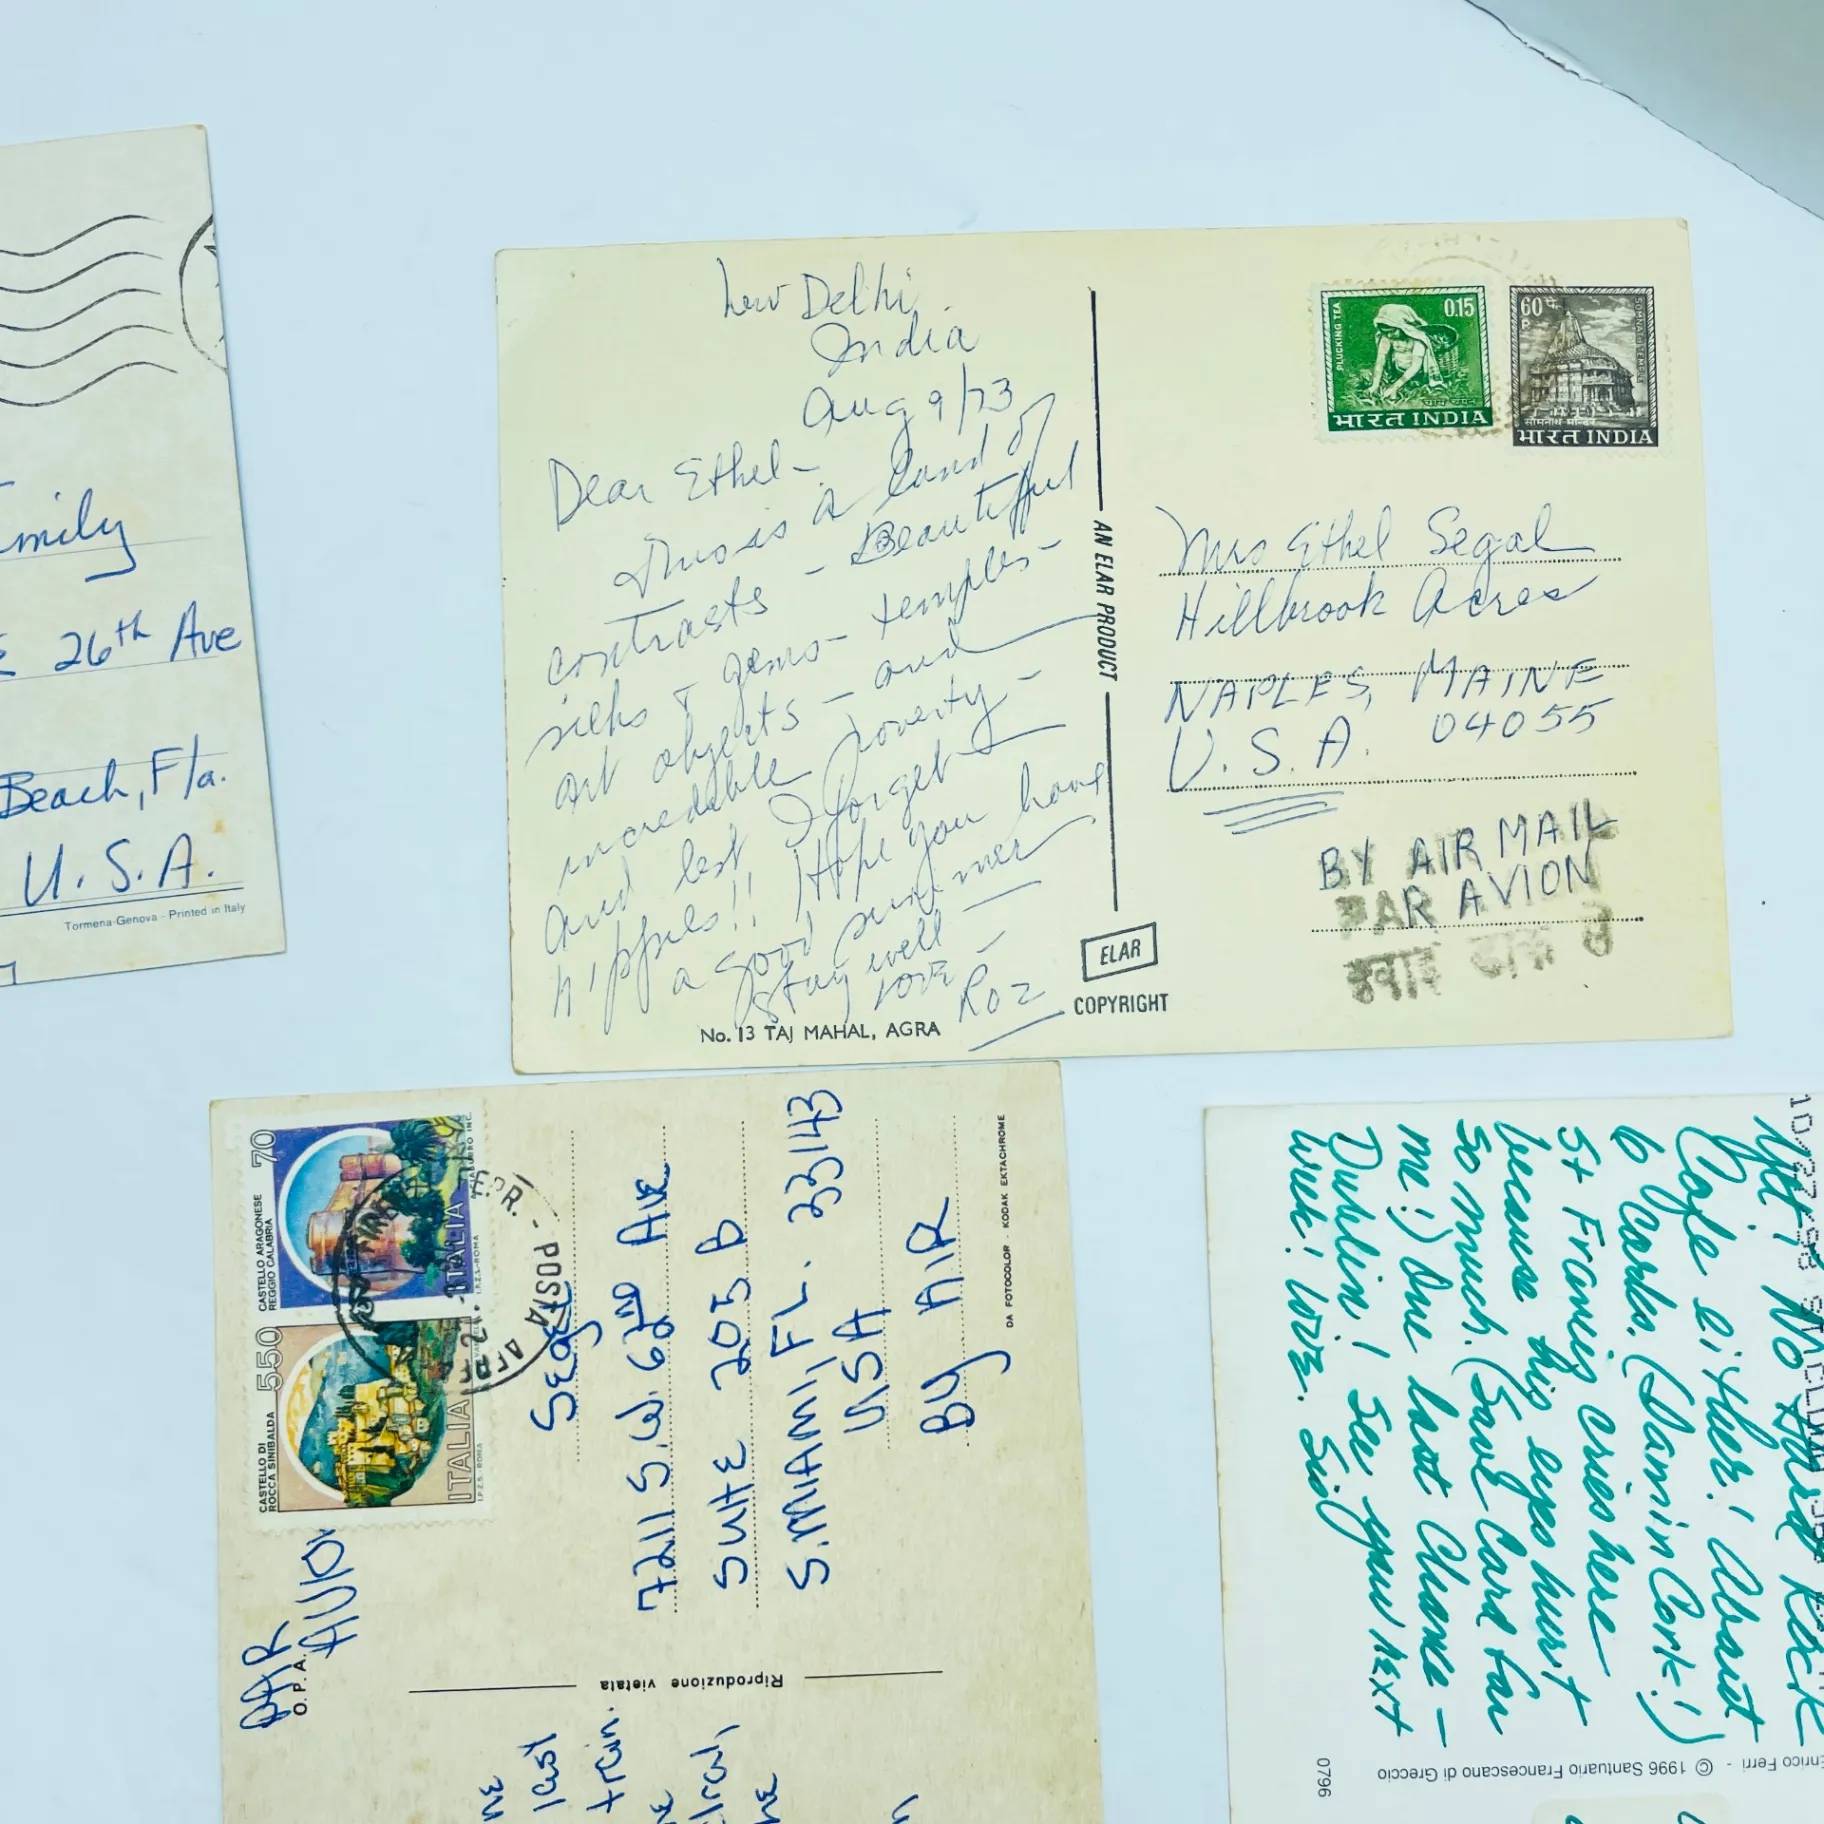 Emily
26th Ave
Beach, Fla.
U.S.A.
Tormena-Genova - Printed in Italy
New Delhi
India
Aug 9/73
Dear Ethel-
This is a land of
contrasts - Beautiful
silks & gems - temples-
art objects - and
incredible poverty-
and lest I forget-
hippies!! Hope you have
a good summer
Stay well -
Love -
Roz
No. 13 TAJ MAHAL, AGRA
AN ELAR PRODUCT
ELAR
COPYRIGHT
PLUCKING TEA
0.15
भारत INDIA
60 पै.
P
SOMNATH TEMPLE
सोमनाथ मन्दिर
भारत INDIA
Mrs Ethel Segal
Hillbrook Acres
NAPLES, MAINE
U.S.A. 04055
BY AIR MAIL
PAR AVION
हवाई डाक से
70
CASTELLO ARAGONESE
REGGIO CALABRIA
ITALIA
I.P.Z.S. - ROMA
550
CASTELLO DI
ROCCA SINIBALDA
ITALIA
I.P.Z.S. - ROMA
POSTA
Segal
7211 S.W. 62nd Ave
Suite 205 B
S. MIAMI, FL. 33143
USA
By AIR
DA FOTOCOLOR - KODAK EKTACHROME
PAR
O.P.A.
Riproduzione vietata
last
train.
10/27/98
Yet! No Hard Rock
Cafe either! About
6 Cards. (Damin Cork!)
St Francis cries here
because his eyes hurt
so much. (Save Card for
me!) One last Chance -
Dublin! See you next
week! Love. Sid
Enrico Ferri - © 1996 Santuario Francescano di Greccio
0796